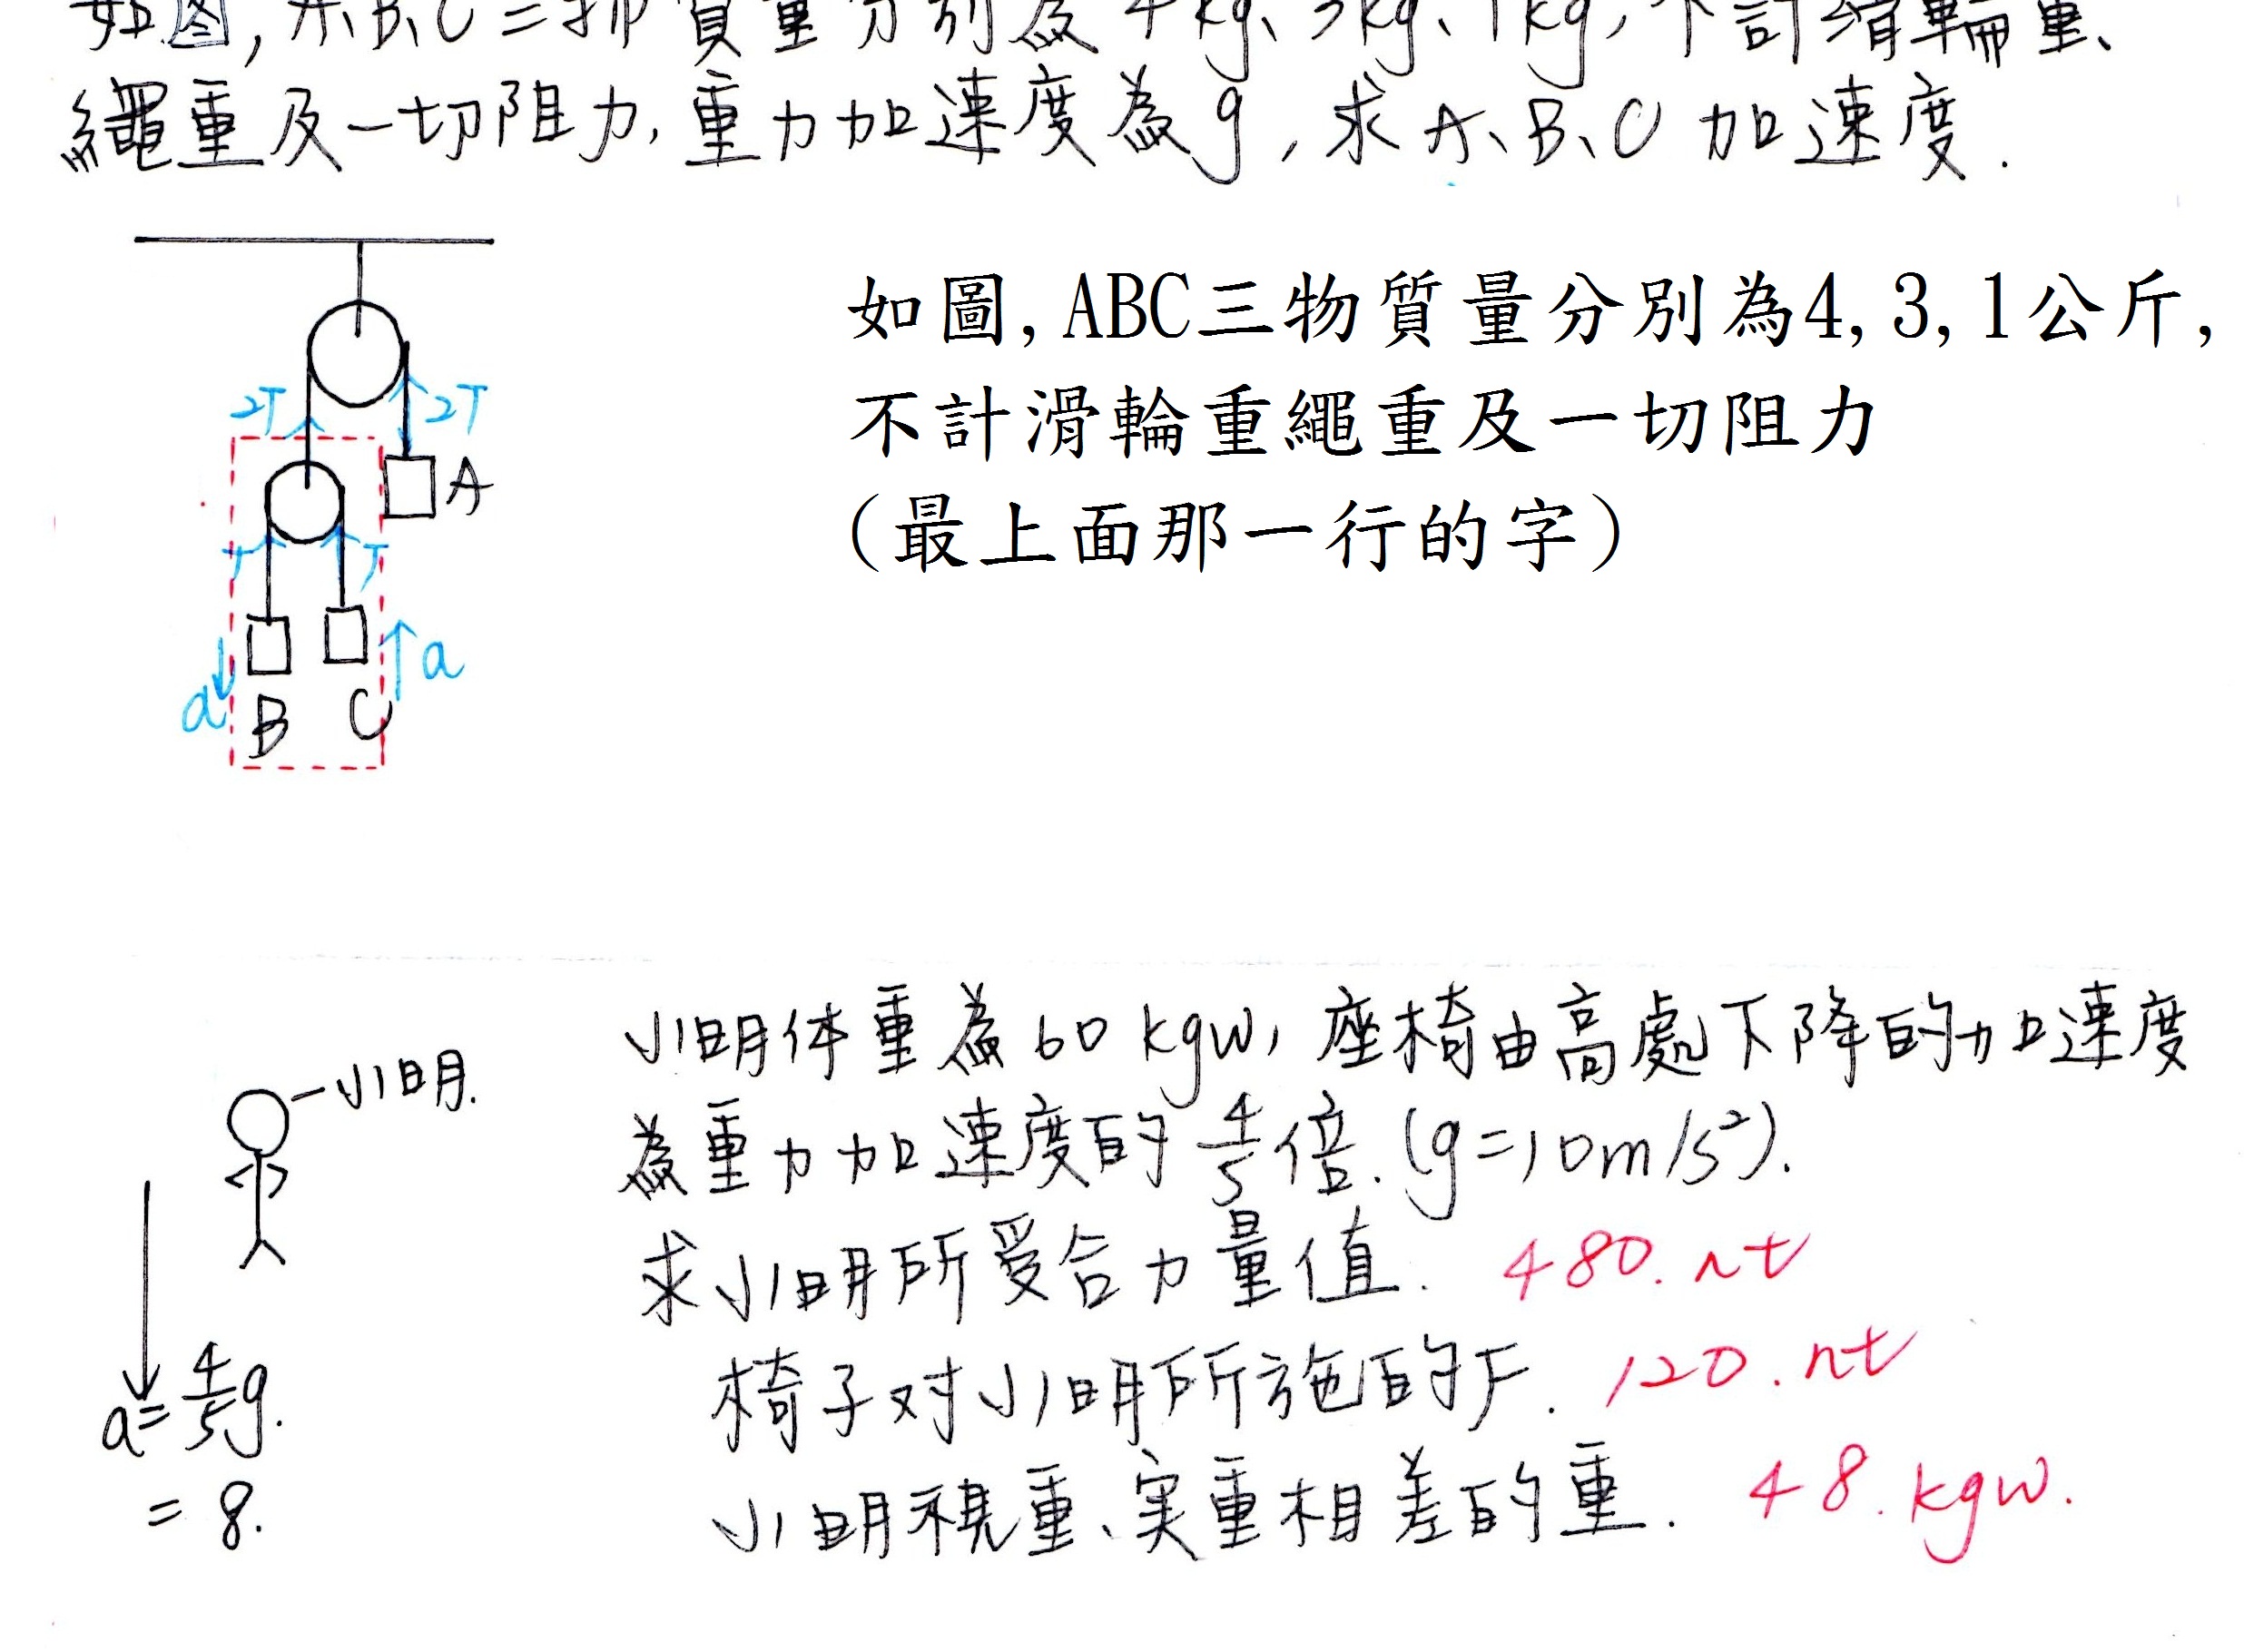 如图,A、B、C三物質量分別為4kg、3kg、1kg,不計滑輪重、
繩重及一切阻力,重力加速度為g,求A、B、C加速度.
如圖,ABC三物質量分別為4,3,1公斤,
不計滑輪重繩重及一切阻力
(最上面那一行的字)
2T
2T
A
T
T
a
a
B
C
小明体重為60kgw,座椅由高處下降的加速度
為重力加速度的4/5倍.(g=10m/s²).
求小明所受合力量值. 480.nt
椅子对小明所施的F. 120.nt
小明視重、実重相差的重. 48.kgw.
小明.
a=4/5g.
=8.